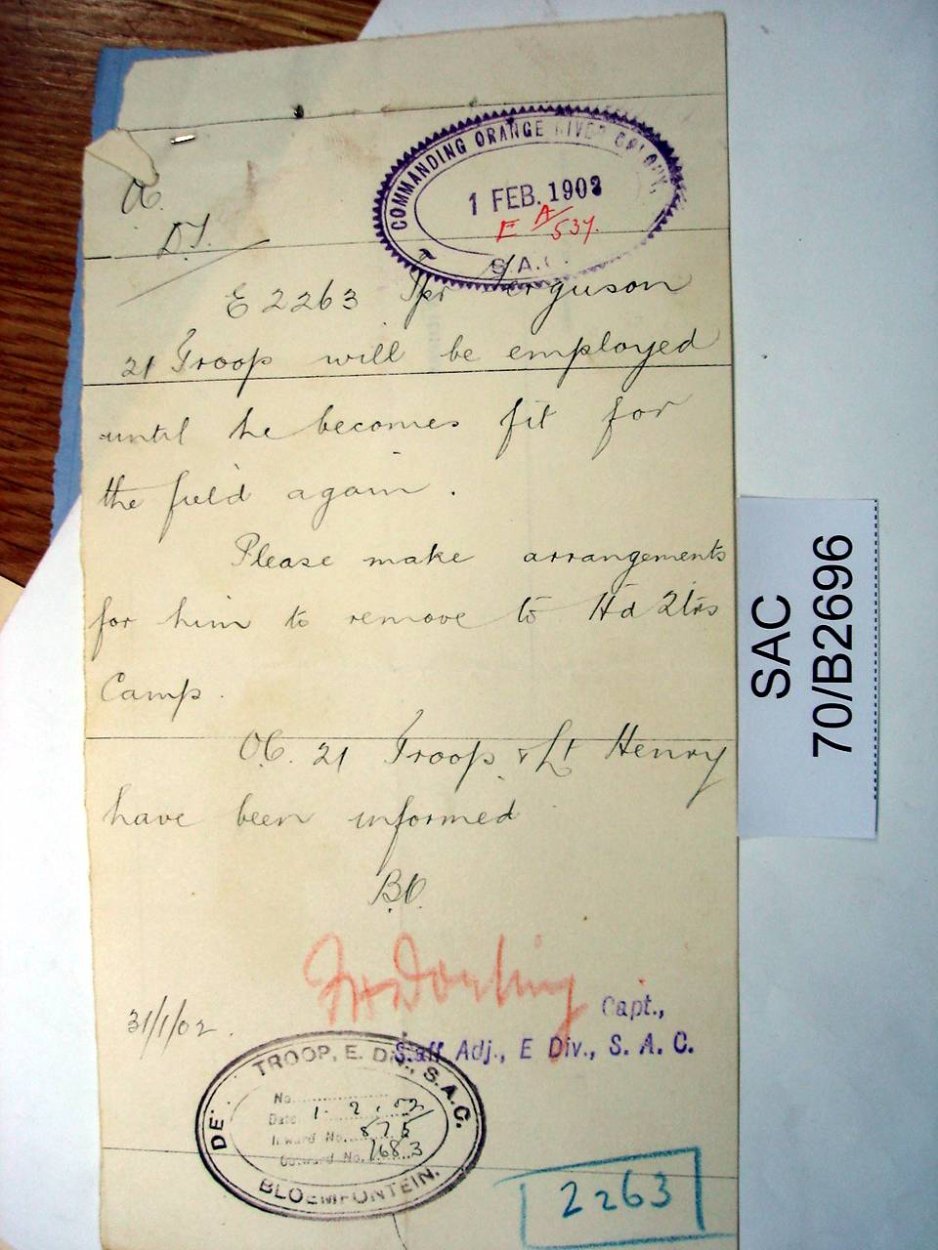 COMMANDING ORANGE RIVER COLONY.
1 FEB. 1902
E A/537.
S.A.C.
OC.
D.T.
E 2263 Tpr Ferguson
21 Troop will be employed
until he becomes fit for
the field again.
Please make arrangements
for him to remove to Hd Qtrs
Camp.
O.C. 21 Troop & Lt Henry
have been informed
B.O.
Capt.,
31/1/02.
Staff Adj., E Div., S. A. C.
TROOP, E. DIV., S.A.C.
No.
Date 1 - 2 . 02
Inward No. 575
Outward No. 1683
BLOEMFONTEIN.
2263
SAC
70/B2696